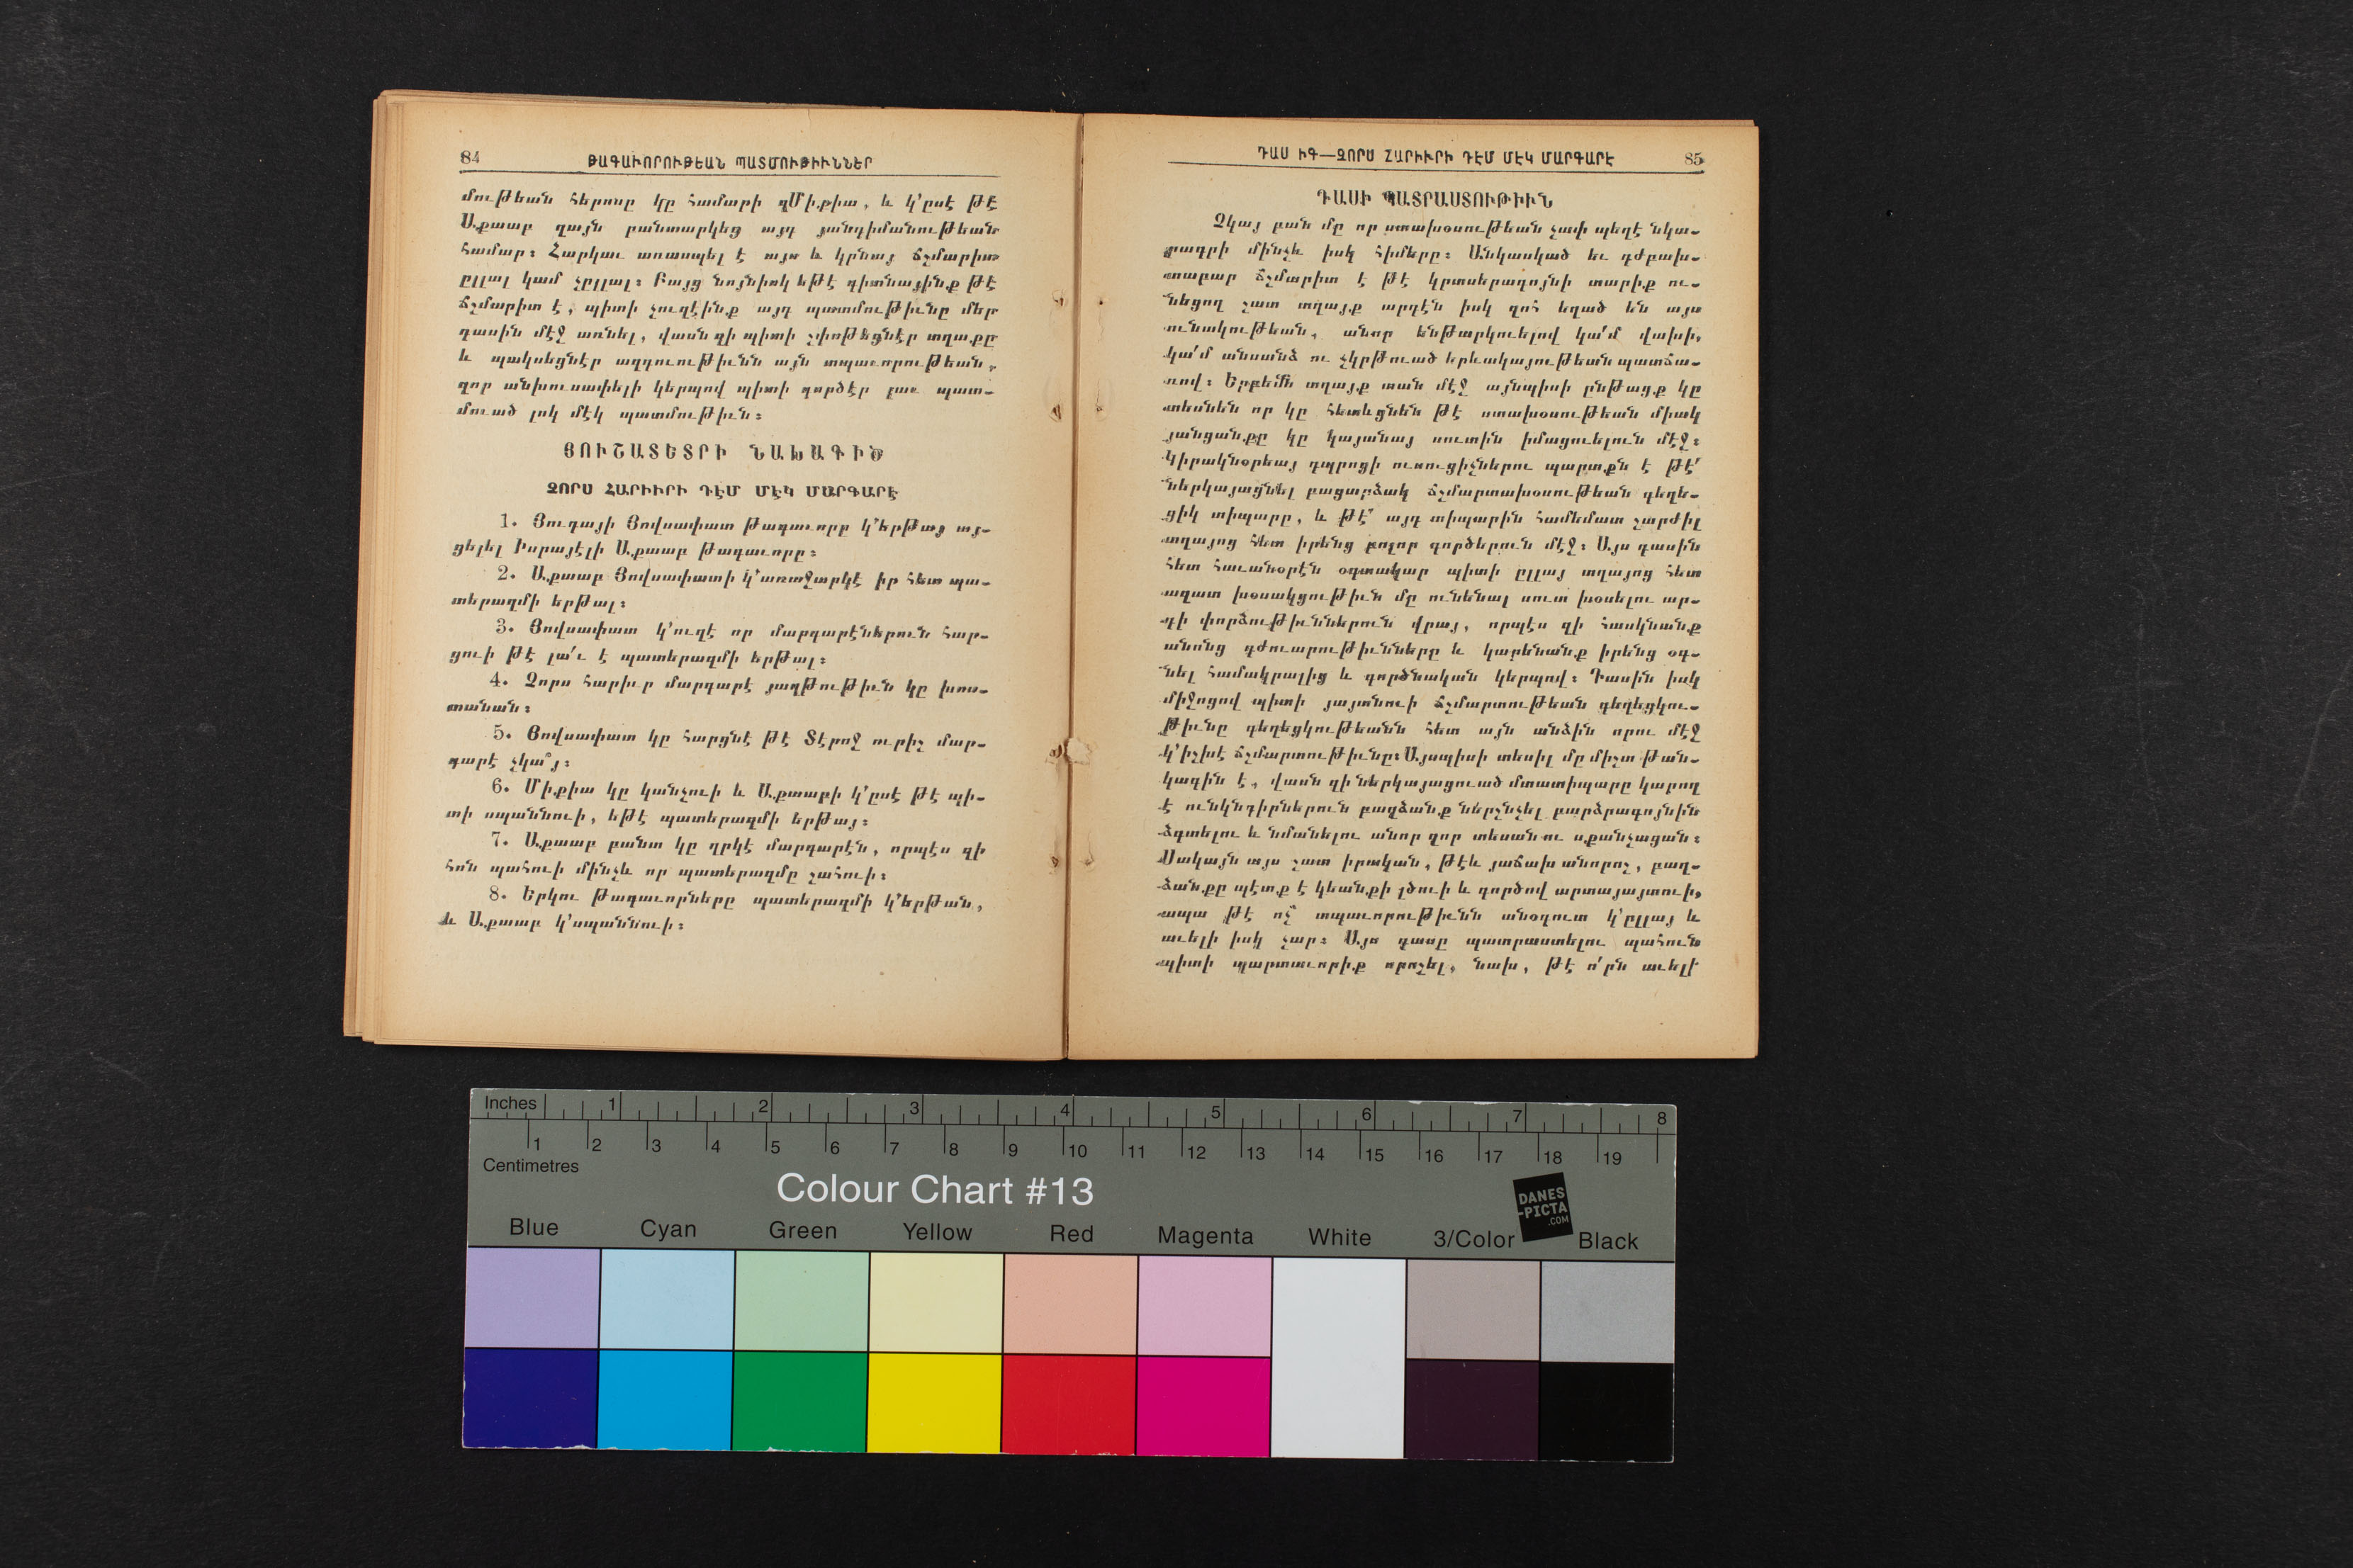 84
ԹԱԳԱՒՈՐՈՒԹԵԱՆ ՊԱՏՄՈՒԹԻՒՆՆԵՐ
մութեան հերոսը կը համարի զՄիքիա, և կ՚ըսէ թէ
Աքաաբ զայն բանտարկեց այդ յանդիմանութեան
համար։ Հարկաւ առասպել է այս և կրնայ ճշմարիտ
ըլլալ կամ չըլլալ։ Բայց նոյնիսկ եթէ գիտնայինք թէ
ճշմարիտ է, պիտի չուզէինք այդ պատմութիւնը մեր
դասին մէջ առնել, վասն զի պիտի շփոթեցնէր տղաքը
և պակսեցնէր ազդուութիւնն այն տպաւորութեան,
զոր անխուսափելի կերպով պիտի գործէր լաւ պատ-
մուած լոկ մէկ պատմութիւն։
ՅՈՒՇԱՏԵՏՐԻ ՆԱԽԱԳԻԾ
ՉՈՐՍ ՀԱՐԻՒՐԻ ԴԷՄ ՄԷԿ ՄԱՐԳԱՐԷ
1. Յուդայի Յովսափատ թագաւորը կ՚երթայ այ-
ցելել Իսրայէլի Աքաաբ թագաւորը։
2. Աքաաբ Յովսափատի կ՚առաջարկէ իր հետ պա-
տերազմի երթալ։
3. Յովսափատ կ՚ուզէ որ մարգարէներուն հար-
ցուի թէ լա՛ւ է պատերազմի երթալ։
4. Չորս հարիւր մարգարէ յաղթութիւն կը խոս-
տանան։
5. Յովսափատ կը հարցնէ թէ Տէրոջ ուրիշ մար-
գարէ չկա՞յ։
6. Միքիա կը կանչուի և Աքաաբի կ՚ըսէ թէ պի-
տի սպաննուի, եթէ պատերազմի երթայ։
7. Աքաաբ բանտ կը դրկէ մարգարէն, որպէս զի
հոն պահուի մինչև որ պատերազմը շահուի։
8. Երկու թագաւորները պատերազմի կ՚երթան,
և Աքաաբ կ՚սպաննուի։
ԴԱՍ ԻԳ—ՉՈՐՍ ՀԱՐԻՒՐԻ ԴԷՄ ՄԷԿ ՄԱՐԳԱՐԷ
85
ԴԱՍԻ ՊԱՏՐԱՍՏՈՒԹԻՒՆ
Չկայ բան մը որ ստախօսութեան չափ պեղէ նկա-
րագրի մինչև իսկ հիմերը։ Անկասկած եւ դժբախ-
տաբար ճշմարիտ է թէ կրտսերագոյնի տարիք ու-
նեցող շատ տղայք արդէն իսկ զոհ եղած են այս
ունակութեան, անոր ենթարկուելով կա՛մ վախի,
կա՛մ անսանձ ու չկրթուած երևակայութեան պատճա-
ռով։ Երբեմն տղայք տան մէջ այնպիսի ընթացք կը
տեսնեն որ կը հետևցնեն թէ ստախօսութեան միակ
յանցանքը կը կայանայ սուտին իմացուելուն մէջ։
Կիրակնօրեայ դպրոցի ուսուցիչներու պարտքն է թէ՛
ներկայացնել բացարձակ ճշմարտախօսութեան գեղե-
ցիկ տիպարը, և թէ՛ այդ տիպարին համեմատ շարժիլ
տղայոց հետ իրենց բոլոր գործերուն մէջ։ Այս դասին
հետ հաւանօրէն օգտակար պիտի ըլլայ տղայոց հետ
ազատ խօսակցութիւն մը ունենալ սուտ խօսելու ար-
դի փորձութիւններուն վրայ, որպէս զի հասկնանք
անոնց դժուարութիւնները և կարենանք իրենց օգ-
նել համակրալից և գործնական կերպով։ Դասին իսկ
միջոցով պիտի յայտնուի ճշմարտութեան գեղեցկու-
թիւնը գեղեցկութեանն հետ այն անձին որու մէջ
կ՚իշխէ ճշմարտութիւնը։ Այսպիսի տեսիլ մը միշտ թան-
կագին է, վասն զի ներկայացուած մտատիպարը կարող
է ունկնդիրներուն բաղձանք ներշնչել բարձրագոյնին
ձգտելու և նմանելու անոր զոր տեսան ու սքանչացան։
Սակայն այս շատ իրական, թէև յաճախ անորոշ, բաղ-
ձանքը պէտք է կեանքի լծուի և գործով արտայայտուի,
ապա թէ ոչ՝ տպաւորութիւնն անօգուտ կ՚ըլլայ և
աւելի իսկ չար։ Այս դասը պատրաստելու պահուն
պիտի պարտաւորիք որոշել, նախ, թէ ո՛րն աւելի
Inches 1 2 3 4 5 6 7 8
1 2 3 4 5 6 7 8 9 10 11 12 13 14 15 16 17 18 19
Centimetres
Colour Chart #13
DANES
-PICTA
.COM
Blue Cyan Green Yellow Red Magenta White 3/Color Black